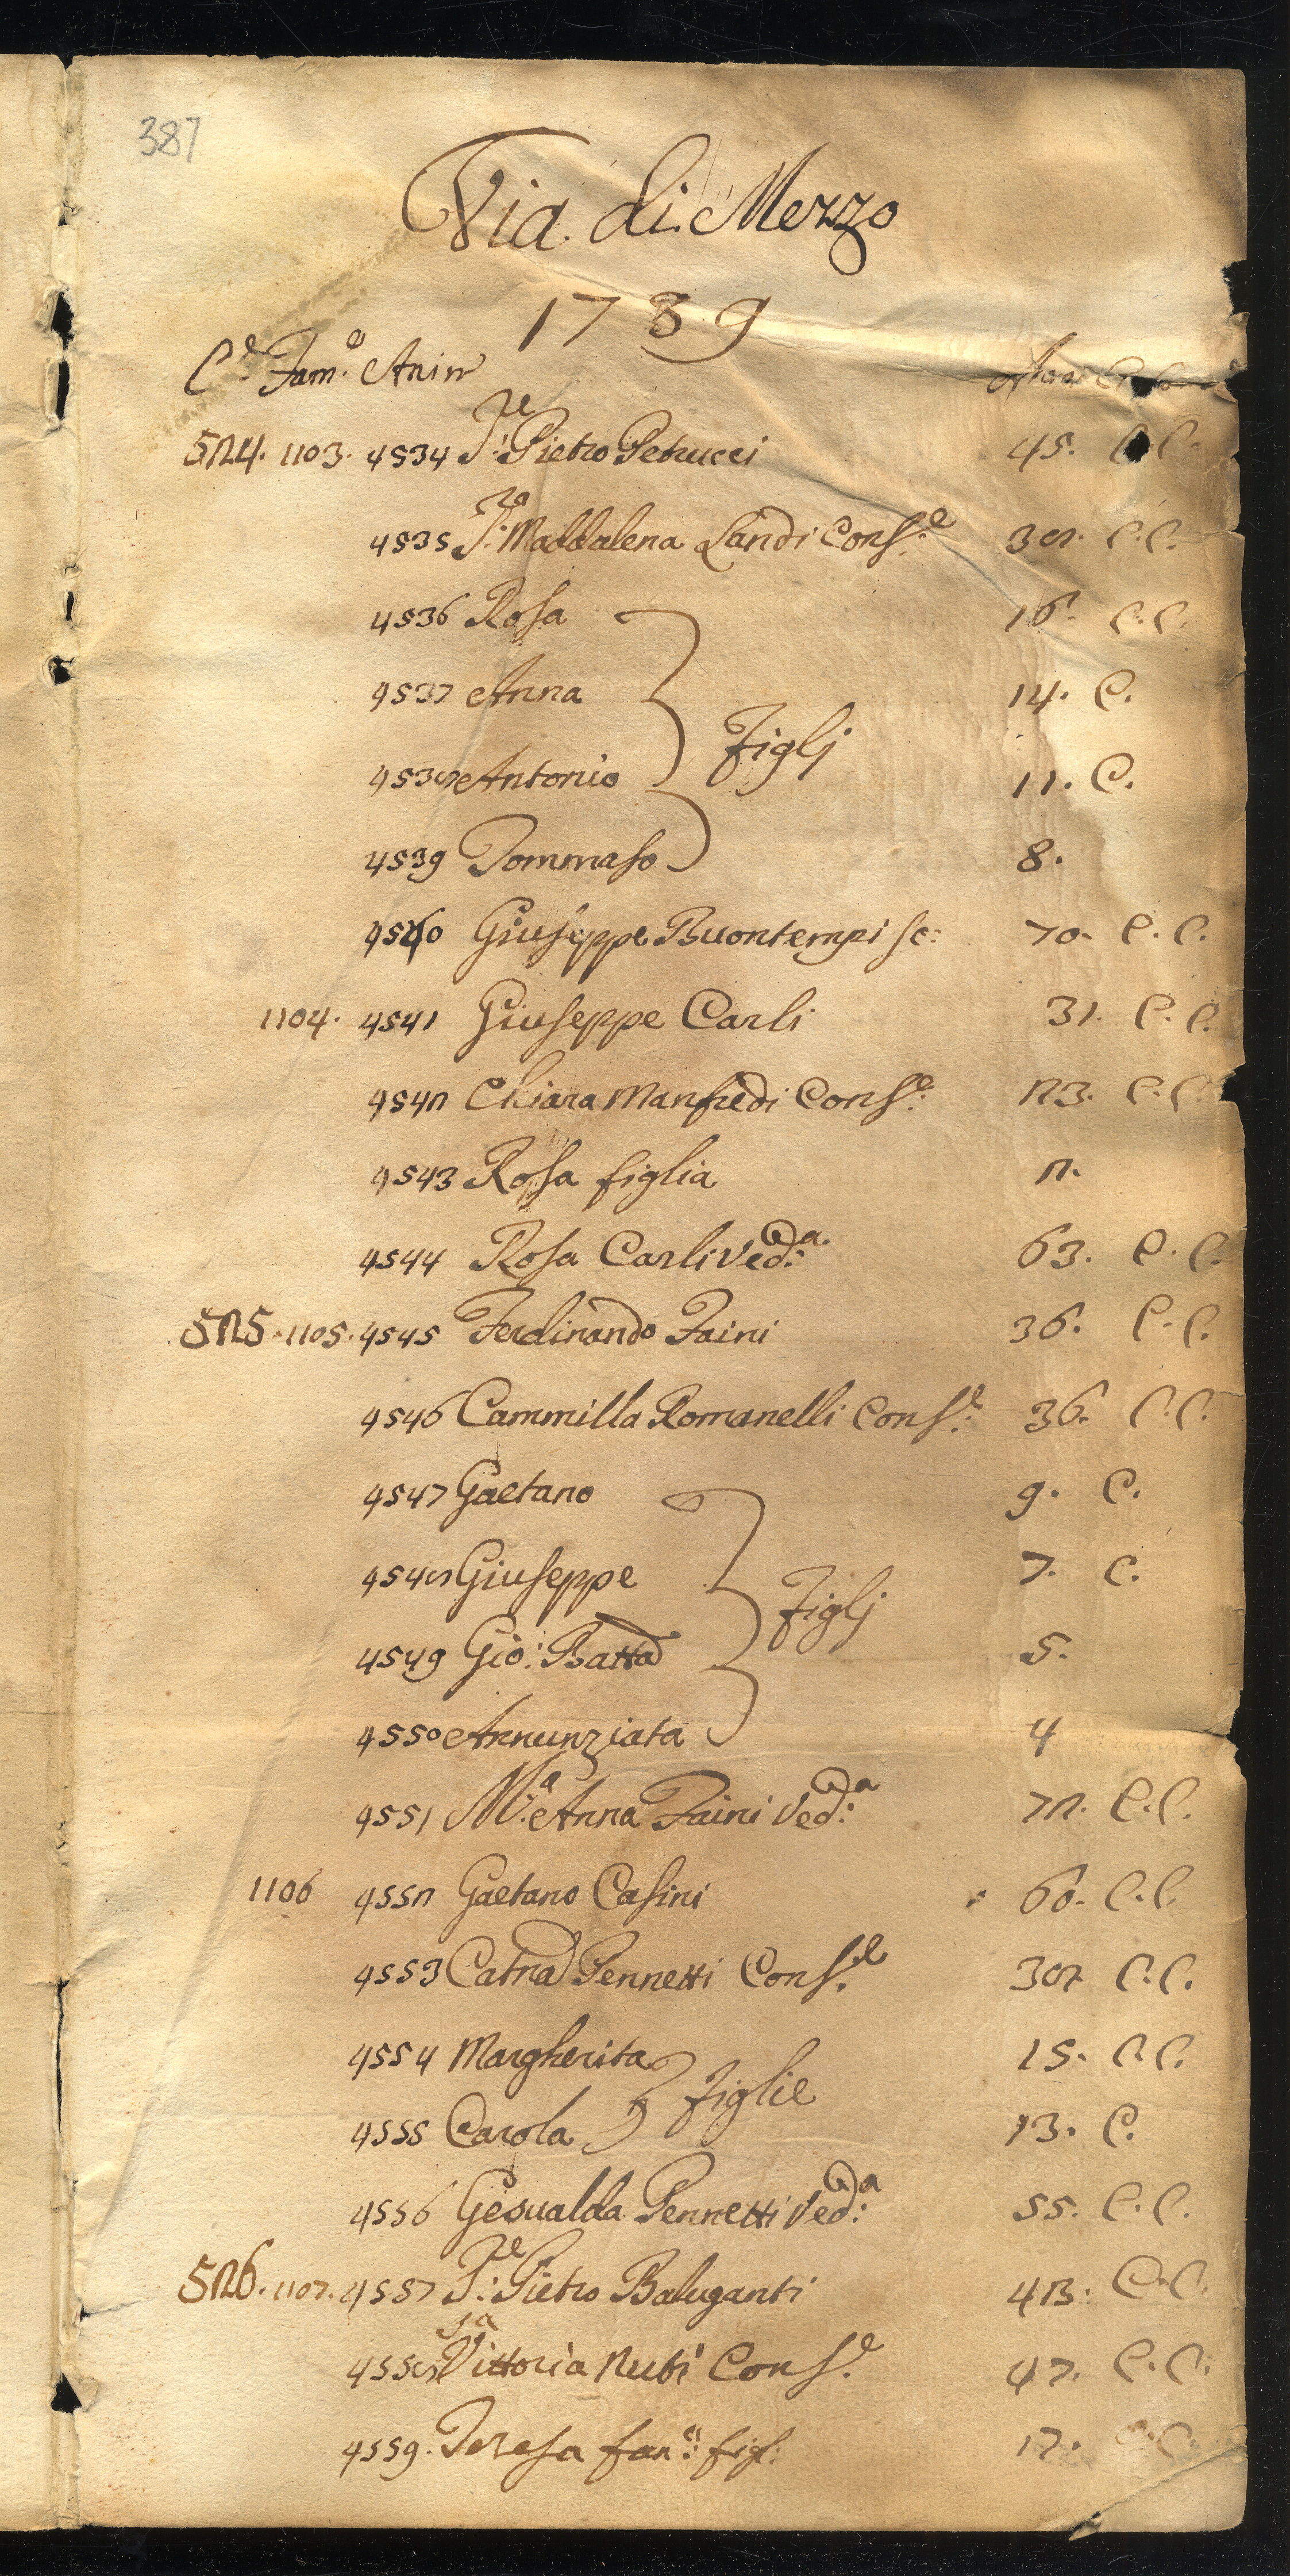 387
Via di Mezzo
1789
C.e Fam.e Anim
524. 1103. 4534 S.re Pietro Petrucci 45. C.C.
4535 S.ra Maddalena Landi Cons.e 38. C.C.
4536 Rosa 16. C.C.
4537 Anna 14. C.
Figlj
4538 Antonio 11. C.
4539 Tommaso 8.
4540 Giuseppe Buontempi sc: 70. C.C.
1104. 4541 Giuseppe Carli 31. C.C.
4542 Chiara Manfredi Cons.e 23. C.C.
4543 Rosa figlia 2.
4544 Rosa Carli Ved.a 63. C.C.
525. 1105. 4545 Ferdinando Faini 36. C.C.
4546 Cammilla Romanelli Cons.e 36. C.C.
4547 Gaetano 9. C.
4548 Giuseppe 7. C.
Figlj
4549 Gio: Batta 5.
4550 Annunziata 4
4551 M.a Anna Faini Ved.a 72. C.C.
1106 4552 Gaetano Casini 60. C.C.
4553 Catna Pennetti Cons.e 38 C.C.
4554 Margherita 15. C.C.
Figlie
4555 Carola 13. C.
4556 Gesualda Pennetti Ved.a 55. C.C.
526. 1107. 4557 S.re Pietro Baluganti C.C.
4558 S.a Vittoria Nuti Cons.e 47. C.C.
4559. Teresa fan: figl. 17. C.C.